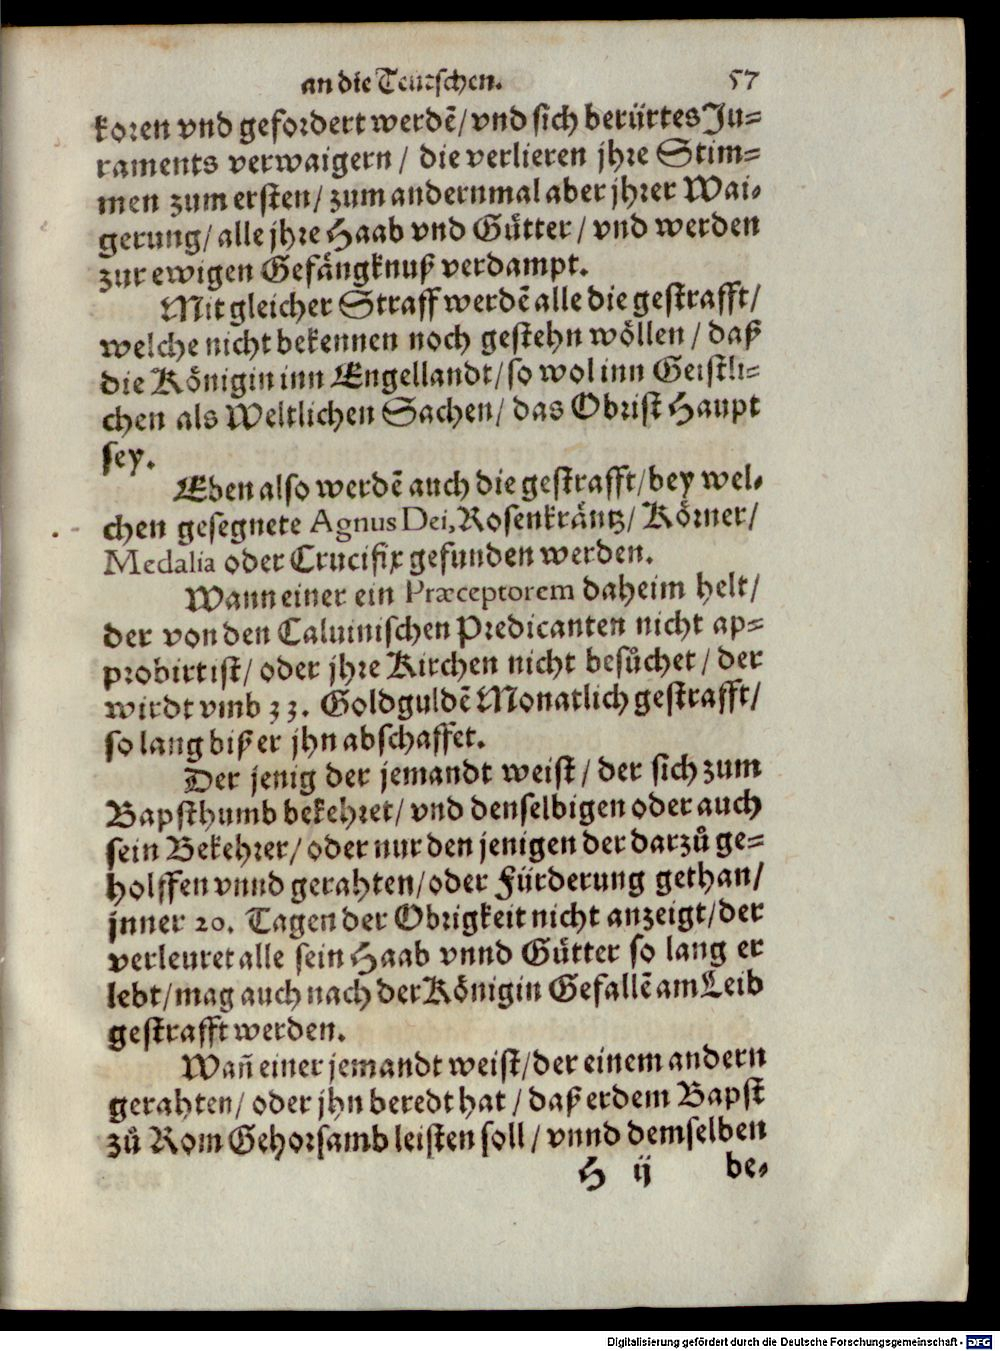 an die Teutschen. 57
koren vnd gefordert werdē/vnd sich berürtes Ju-
raments verwaigern / die verlieren jhre Stim-
men zum ersten/ zum andernmal aber jhrer Wai-
gerung/ alle jhre Haab vnd Gütter / vnd werden
zur ewigen Gefängknuß verdampt.
Mit gleicher Straff werdē alle die gestrafft/
welche nicht bekennen noch gestehn wöllen / daß
die Königin inn Engellandt/ so wol inn Geistli-
chen als Weltlichen Sachen/ das Obrist Haupt
sey.
Eben also werdē auch die gestrafft/bey wel-
chen gesegnete Agnus Dei, Rosenkräntz/ Körner/
Medalia oder Crucifix gefunden werden.
Wann einer ein Præceptorem daheim helt/
der von den Caluinischen Predicanten nicht ap-
probirt ist/ oder jhre Kirchen nicht besuͦchet / der
wirdt vmb 33. Goldguldē Monatlich gestrafft/
so lang biß er jhn abschaffet.
Der jenig der jemandt weist / der sich zum
Bapsthumb bekehret/ vnd denselbigen oder auch
sein Bekehrer/ oder nur den jenigen der darzuͦ ge-
holffen vnnd gerahten/oder Fürderung gethan/
jnner 20. Tagen der Obrigkeit nicht anzeigt/der
verleuret alle sein Haab vnnd Gütter so lang er
lebt/ mag auch nach der Königin Gefallē am Leib
gestrafft werden.
Wañ einer jemandt weist/der einem andern
gerahten/ oder jhn beredt hat / daß er dem Bapst
zuͦ Rom Gehorsamb leisten soll / vnnd demselben
H ij be-
Digitalisierung gefördert durch die Deutsche Forschungsgemeinschaft - DFG